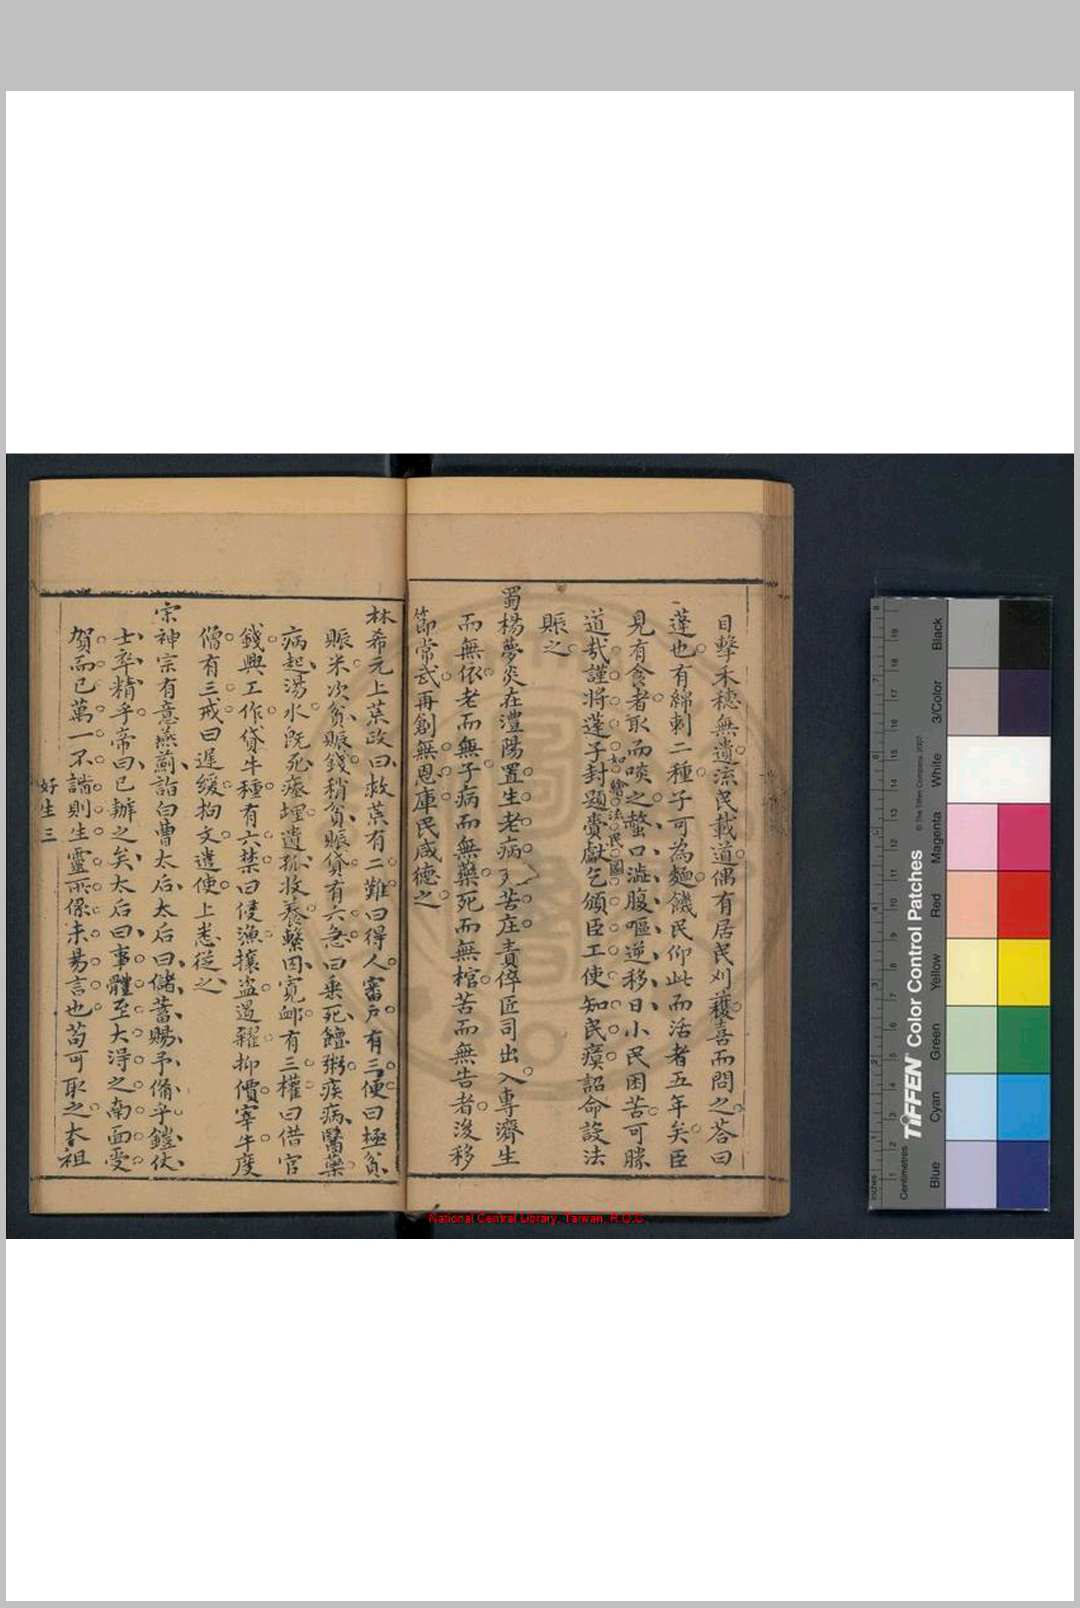 目擊禾穗無遺流民載道偶有居民刈穫喜而問之荅曰
蓬也有綿刺二種子可為麵饑民仰此而活者五年矣臣
見有食者取而啖之螫口澁腹嘔逆移日小民困苦可勝
道哉謹將蓬子封題賫獻乞頒臣工使知民瘼詔命設法
如繪流民圖
賑之
蜀楊夢炎在澧陽置生老病死苦庄責倅匠司出入專濟生
而無依老而無子病而無藥死而無棺苦而無告者浚移
節常武再創無恩庫民咸德之
林希元上荒政曰救荒有二難曰得人審戶有三便曰極貧
賑米次貧賑錢稍貧賑貸有六急曰垂死饘粥疾病醫藥
病起湯水既死瘞埋遺孤收養繫囚寬卹有三權曰借官
錢興工作貸牛種有六禁曰侵漁攘盜遏糴抑價宰牛度
僧有三戒曰遲緩拘文遣使上悉從之
宗神宗有意燕薊詣白曹太后太后曰儲蓄賜予備乎鎧仗
士卒精乎帝曰已辦之矣太后曰事體至大淂之南面受
賀而已萬一不諧則生靈所係未易言也苟可取之太祖
好生 三
National Central Library, Taiwan, R.O.C
TIFFEN Color Control Patches
© The Tiffen Company, 2007
Centimetres
Inches
Blue
Cyan
Green
Yellow
Red
Magenta
White
3/Color
Black